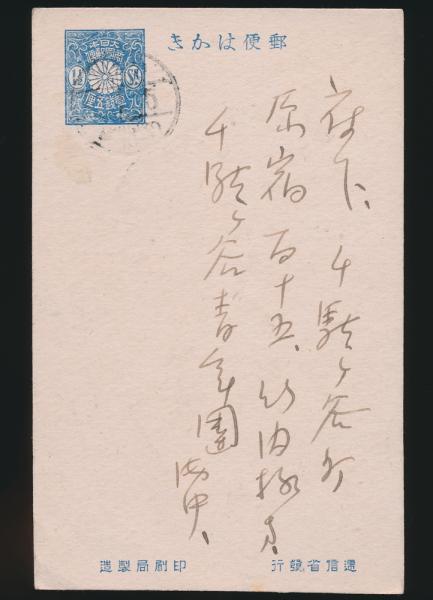 郵便はかき
大日本
帝國郵便
1½
Sn
壹銭五厘
府下、千駄ヶ谷町
原宿百十五、竹内
千駄ヶ谷青年團
御中、
逓信省發行
印刷局製造